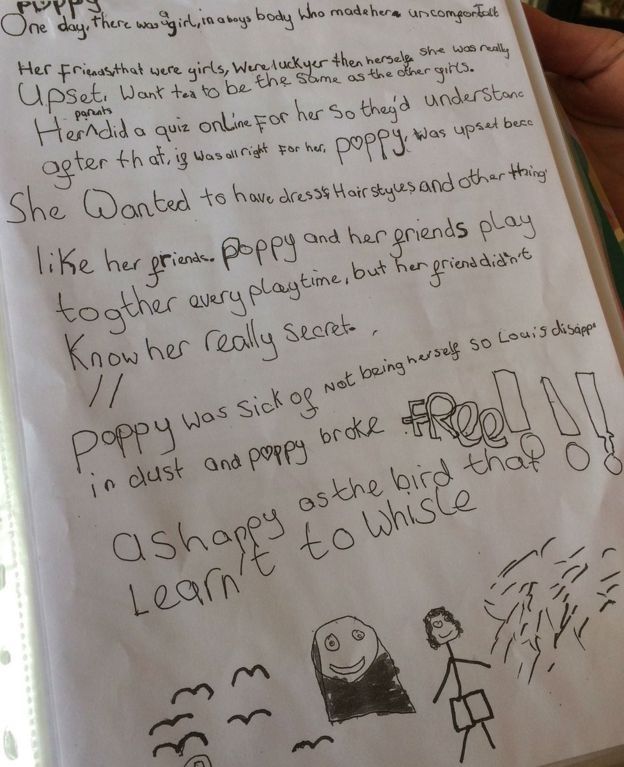 poppy
One day, There was a girl, in a boys body who made her uncomfortabl
Her Friends, that were girls, Were luckyer then herself, she was really
Upset, Want ted to be the same as the other girls.
Her parents did a quiz online For her So they'd understand
after that, if was all right For her, poppy, was upset beca
She Wanted to have dresss Hair styles and other thing
like her friends. poppy and her friends play
togther every playtime, but her friend didn't
Know her really secret.
//
poppy was sick of Not being herself so Louis disappe
in dust and poppy broke FRee!!!
as happy as the bird that
Learn't to whisle